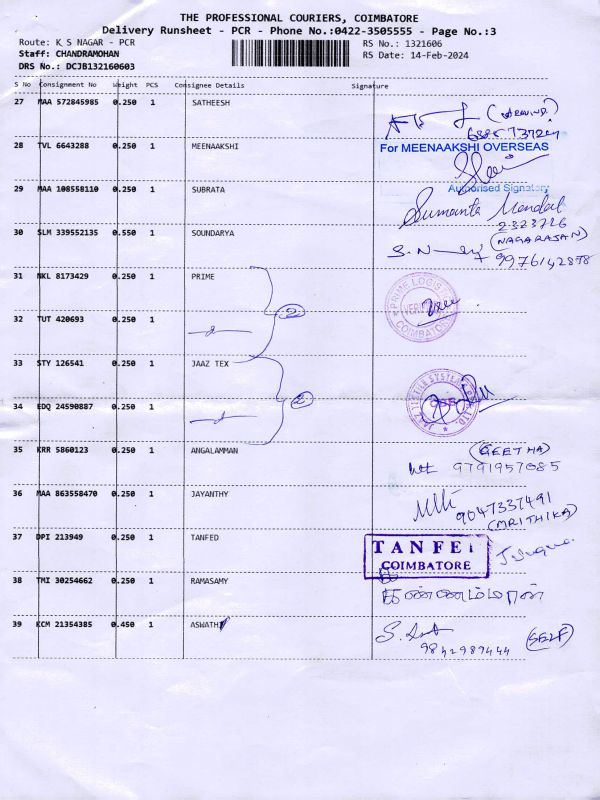 THE PROFESSIONAL COURIERS, COIMBATORE
Delivery Runsheet - PCR - Phone No.:0422-3505555 - Page No.:3
Route: K S NAGAR - PCR
RS No.: 1321606
Staff: CHANDRAMOHAN
RS Date: 14-Feb-2024
DRS No.: DCJB132160603
S No Consignment No Weight PCS Consignee Details Signature
27 MAA 572845985 0.250 1 SATHEESH
28 TVL 6643288 0.250 1 MEENAAKSHI
For MEENAAKSHI OVERSEAS
Authorised Signatory
29 MAA 108558110 0.250 1 SUBRATA
Sumanta Mondal
2323726
30 SLM 339552135 0.550 1 SOUNDARYA
(NAGARASAN)
9976142878
31 NKL 8173429 0.250 1 PRIME
PRIME LOGIS
COIMBATORE
32 TUT 420693 0.250 1
2
33 STY 126541 0.250 1 JAAZ TEX
34 EDQ 24590887 0.250 1
2
35 KRR 5860123 0.250 1 ANGALAMMAN
(GEETHA)
9791957085
36 MAA 863558470 0.250 1 JAYANTHY
9047337491
(MRITHIKA)
37 DPI 213949 0.250 1 TANFED
TANFE
COIMBATORE
38 TMI 30254662 0.250 1 RAMASAMY
39 KCM 21354385 0.450 1 ASWATH
9842989444 (SELF)